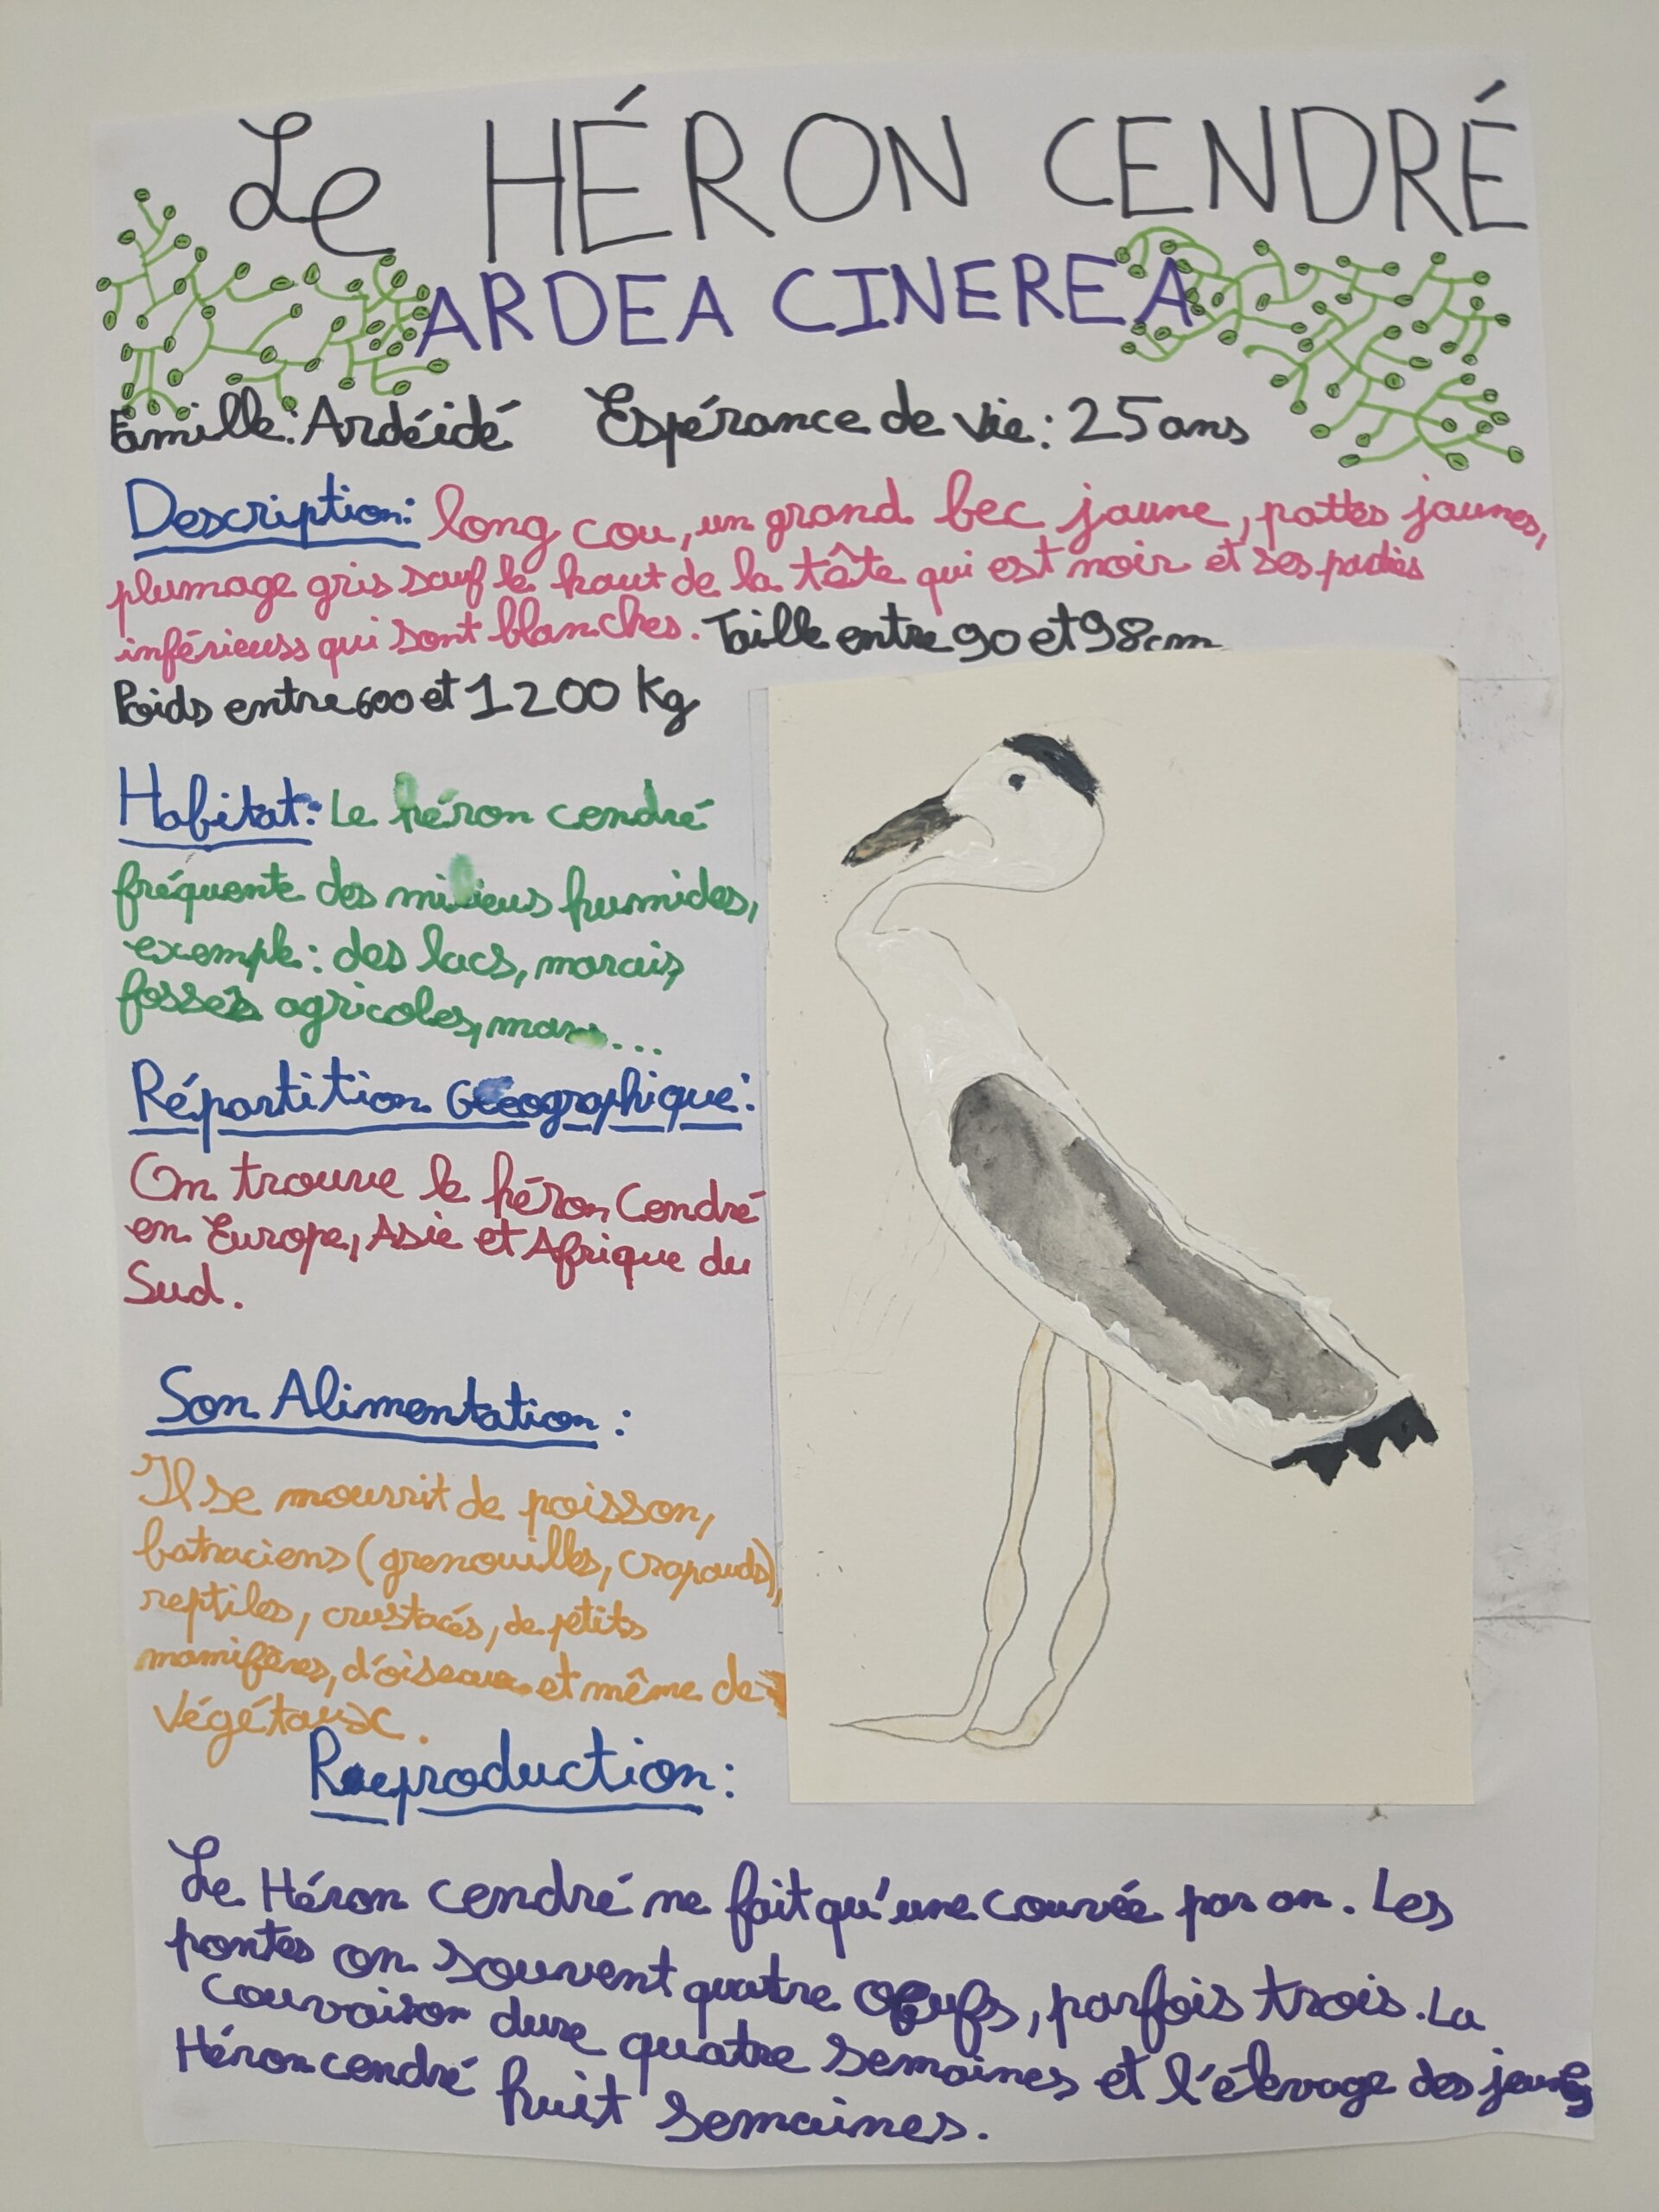 Le HÉRON CENDRÉ
ARDEA CINEREA
Famille: Ardéidé Espérance de vie: 25 ans
Description: long cou, un grand bec jaune, pattes jaunes,
plumage gris sauf le haut de la tête qui est noir et ses parties
inférieuss qui sont blanches. Taille entre 90 et 98 cm
Poids entre 600 et 1200 Kg
Habitat: Le héron cendré
fréquente des milieus humides,
exemple: des lacs, marais,
fossés agricoles, mars...
Répartition Géographique:
On trouve le héron Cendré
en Europe, Asie et Afrique du
Sud.
Son Alimentation:
Il se nourrit de poisson,
batraciens (grenouilles, crapauds),
reptiles, crustacés, de petits
mamifères, d'oiseaux et même de
végétaux.
Reproduction:
Le Héron cendré ne fait qu'une couvée par an. Les
pontes on souvent quatre œufs, parfois trois. La
couvaison dure quatre semaines et l'élevage des jeunes
Héron cendré huit semaines.